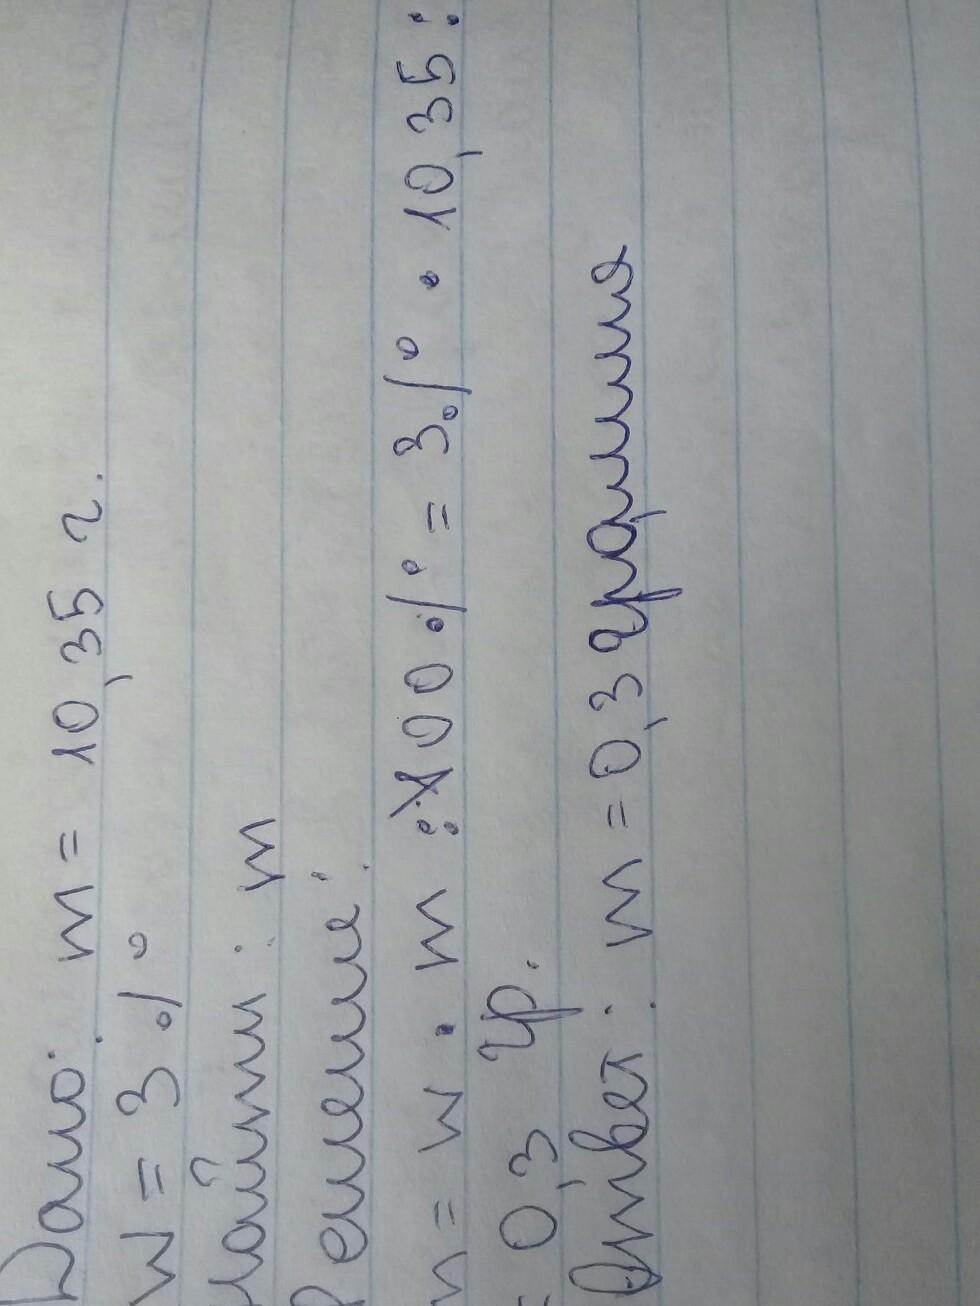 Дано: m = 10,35 г.
W = 3 %
Найти: m
Решение:
m = W · m : 100 % = 3 % · 10,35 :
= 0,3 гр.
Ответ: m = 0,3 грамма